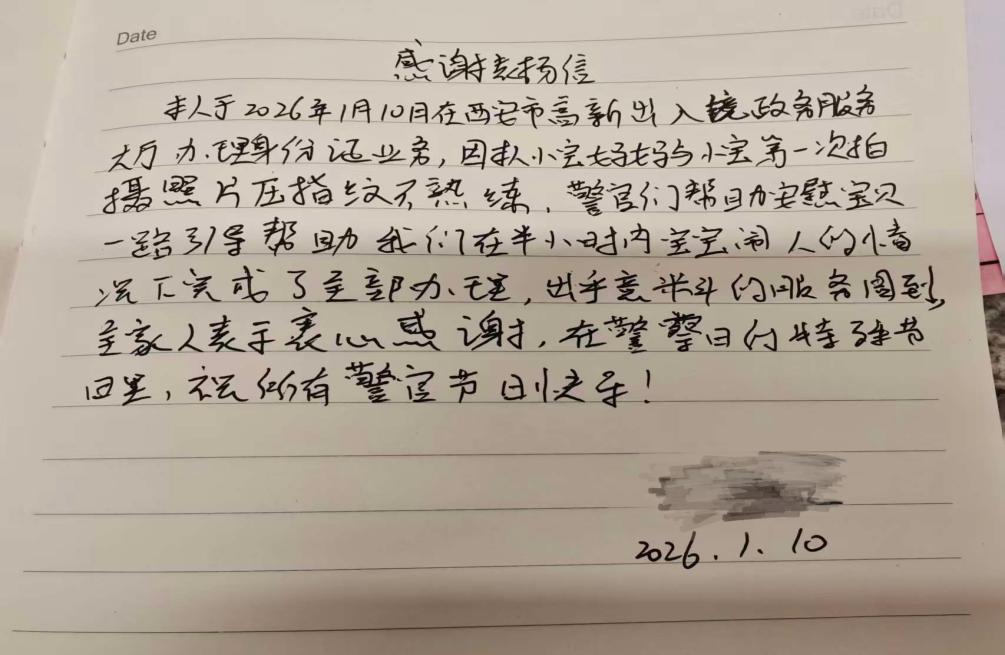 Date
感谢表扬信
本人于2026年1月10日在西安市高新出入镜政务服务
大厅办理身份证业务,因本人小宝妈妈与小宝第一次拍
摄照片压指纹不熟练,警官们帮助安慰宝贝
一路引导帮助我们在半小时内宝宝闹人的情
况下完成了全部办理,出乎意料的服务周到,
全家人表示衷心感谢,在警察日的特殊节
日里,祝所有警官节日快乐!
2026.1.10